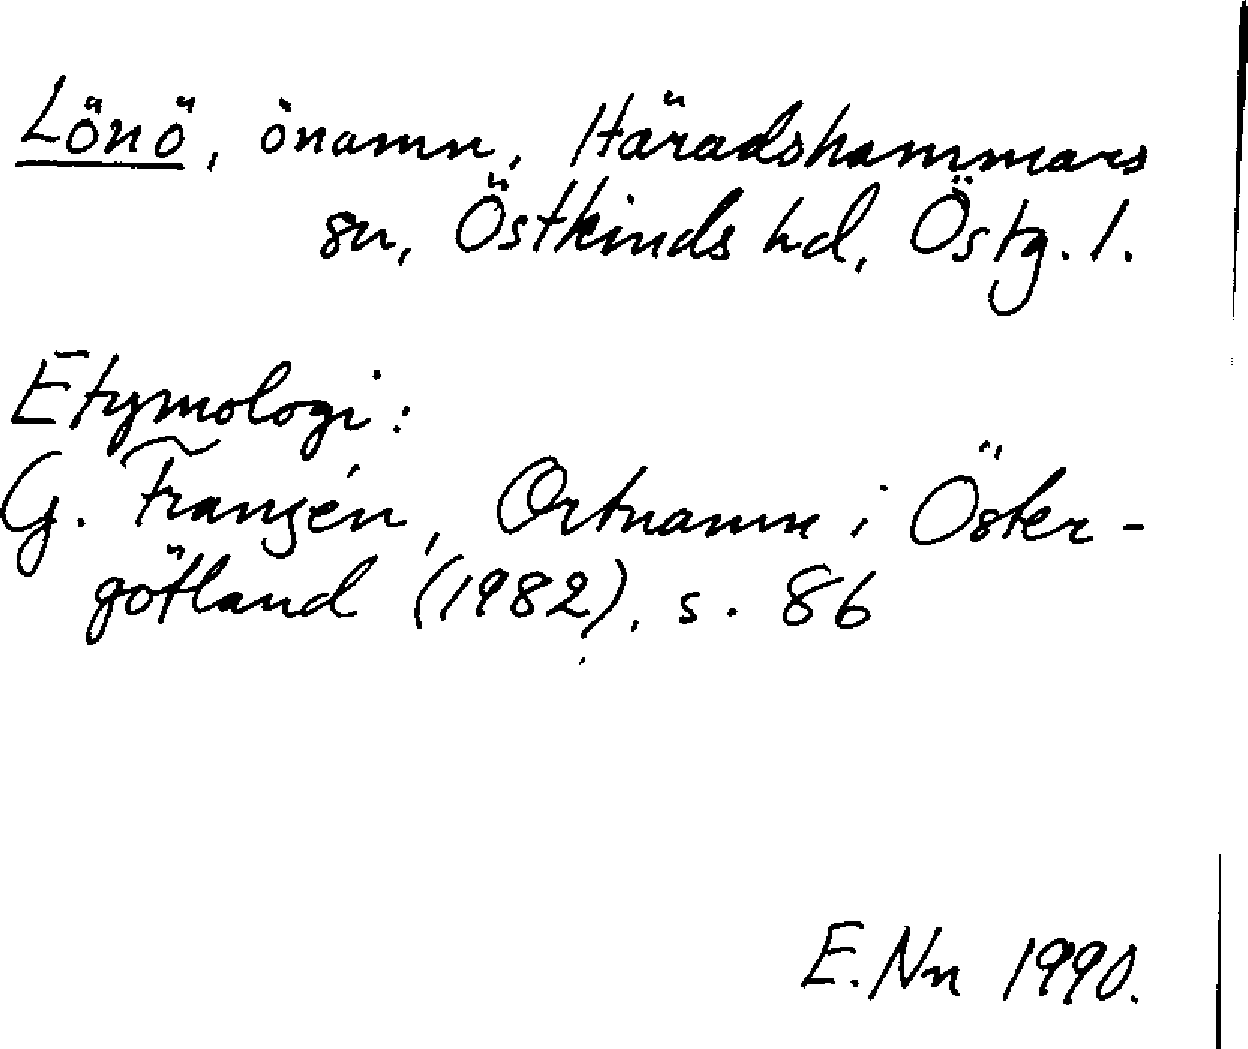 Lönö, önamn, Häradshammars
sn, Östkinds hd, Östg. l.
Etymologi:
G. Franzén, Ortnamn i Öster-
götland (1982), s. 86
E. Nn 1990.